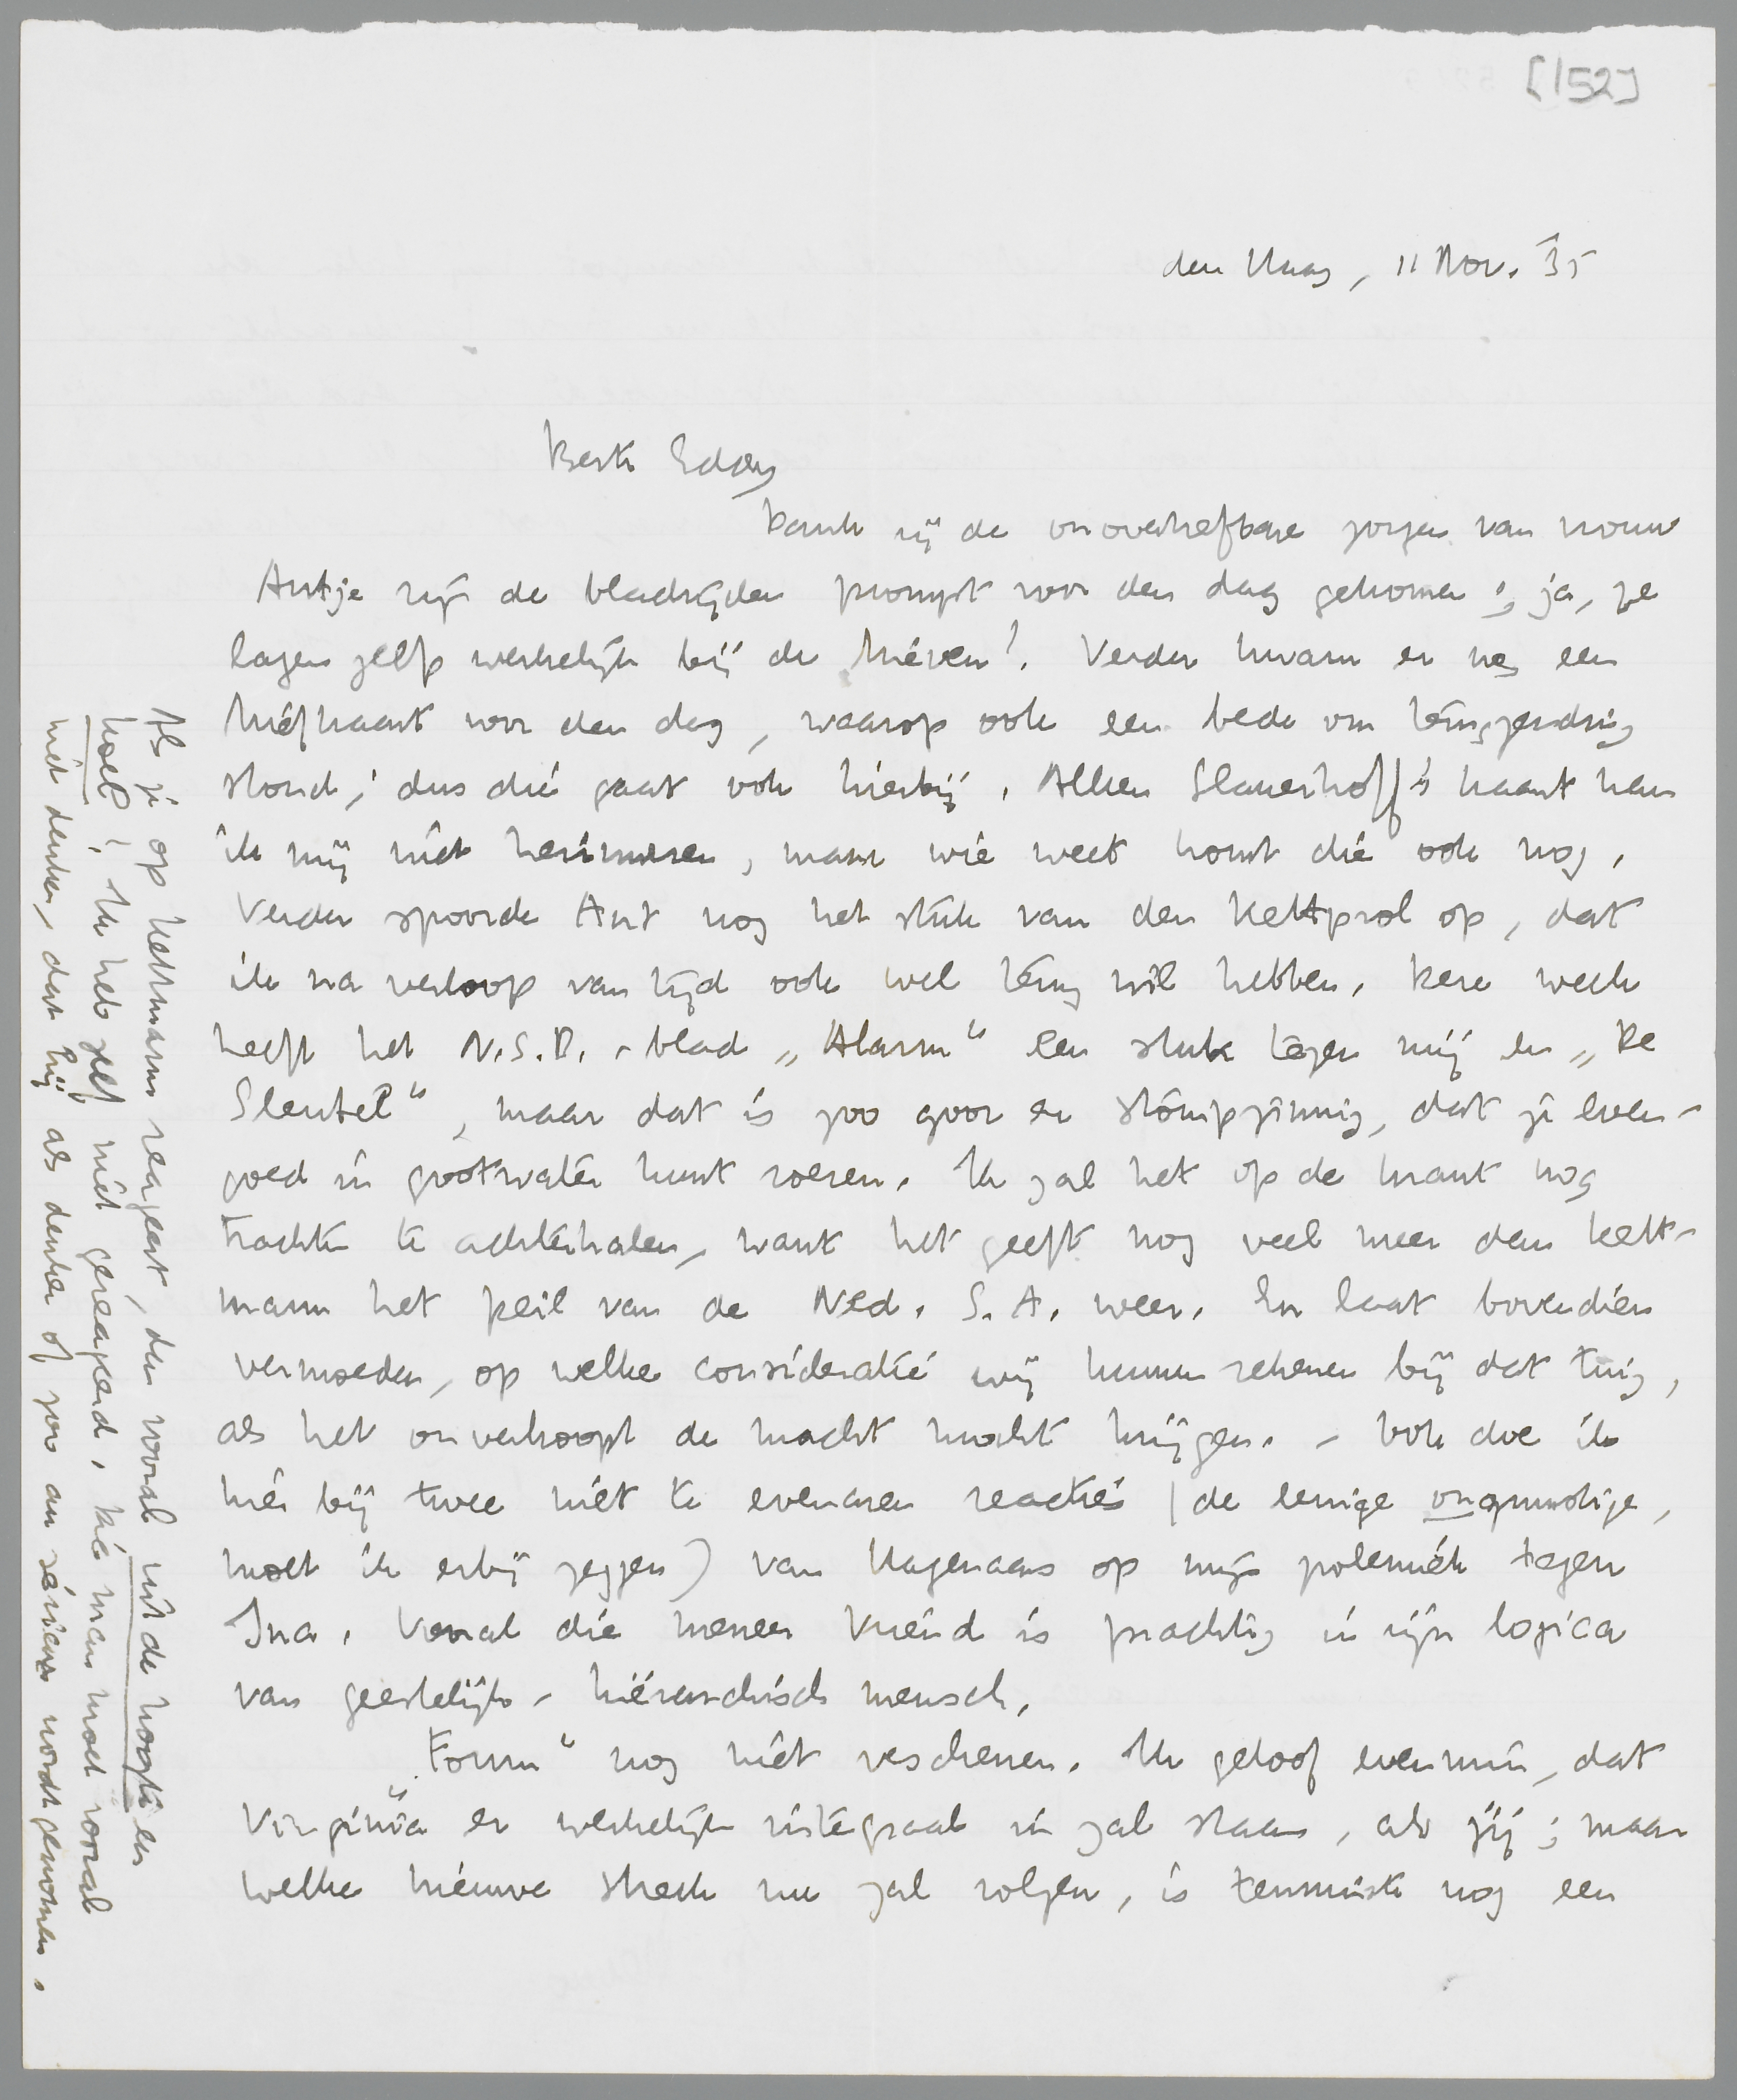 [152]
den Haag, 11 Nov. '35
Beste Eddy
Dank zij de onovertrefbare zorgen van vrouw
Antje zijn de bladzijden prompt voor den dag gekomen; ja, ze
lagen zelfs werkelijk bij de brieven! Verder kwam er nog een
briefkaart voor den dag, waarop ook een bede om terugzending
stond; dus die gaat ook hierbij. Alleen Slauerhoff's kaart kan
ik mij niet herinneren, maar wie weet komt die ook nog.
Verder spoorde Ant nog het stuk van den Kettprol op, dat
ik na verloop van tijd ook wel terug wil hebben. Deze week
heeft het N.S.B.-blad „Alarm" een stuk tegen mij en „De
Sleutel", maar dat is zoo goor en stompzinnig, dat je even-
goed in gootwater kunt roeren. Ik zal het op de krant nog
trachten te achterhalen, want het geeft nog veel meer dan Kett-
mann het peil van de Ned. S.A. weer. En laat bovendien
vermoeden, op welke consideratie wij kunnen rekenen bij dat tuig,
als het onverhoopt de macht mocht krijgen. - Ook doe ik
hier bij twee niet te evenaren reacties (de eenige ongunstige,
moet ik erbij zeggen) van Hagenaars op mijn polemiek tegen
Ina. Vooral die meneer Vriend is prachtig in zijn logica
van geestelijk-hiërarchisch mensch.
„Forum" nog niet verschenen. Ik geloof evenmin, dat
Virginia er werkelijk integraal in zal staan, als jij; maar
welke nieuwe streek nu zal volgen, is tenminste nog een
Als je op Kettmann reageert, dan vooral uit de hoogte en
koel! Ik heb zelf niet gereageerd. Die man moet vooral
niet denken, dat hij als denker of zoo au sérieux wordt genomen.